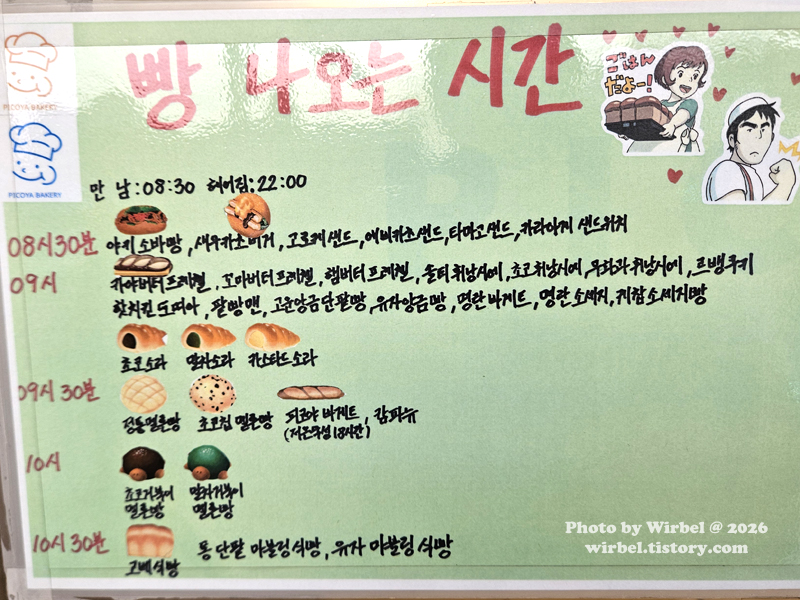 빵 나오는 시간
ごはん
だよー!
PICOYA BAKERY
PICOYA BAKERY
만 남:08:30 헤어짐:22:00
08시30분 야키 소바빵, 새우카츠버거, 고로케샌드, 에비카츠샌드, 타마고샌드, 카라아게 샌드위치
09시 카야버터프레첼, 꼬마버터프레첼, 햄버터프레첼, 몰티휘낭시에, 초코휘낭시에, 무화과휘낭시에, 르뱅쿠키
핫치킨또띠아, 팥빵맨, 고운앙금단팥빵, 유자앙금빵, 명란바게트, 명란소세지, 케찹소세지빵
초코소라 말차소라 카스타드소라
09시 30분 정통멜론빵 초코칩 멜론빵 피코야 바게트, 깜파뉴
(저온숙성 18시간)
10시
초코거북이 말차거북이
멜론빵 멜론빵
10시30분 통단팥 마블링식빵, 유자 마블링식빵
고베식빵
Photo by Wirbel @ 2026
wirbel.tistory.com